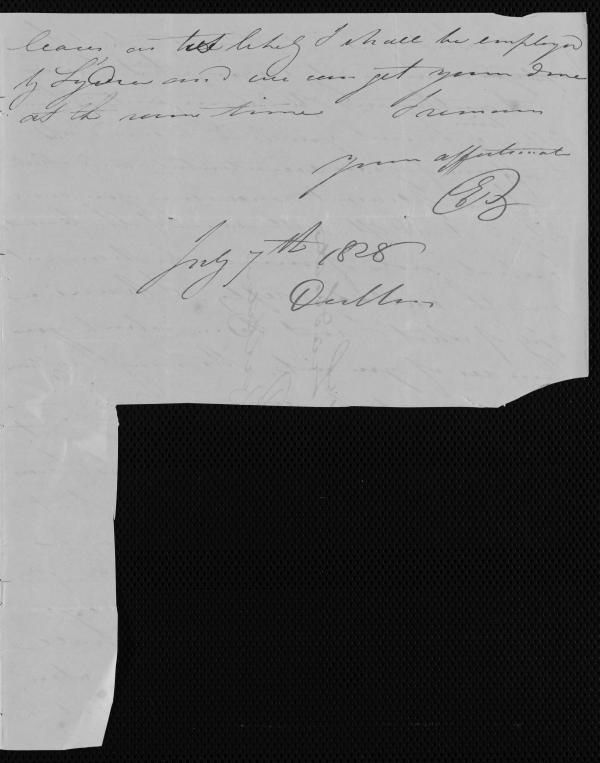 leave as tis likely I shall be employed
by Lydia and we can get yours done
at the same time I remain
yours affectionate
EB
July 7th 1828